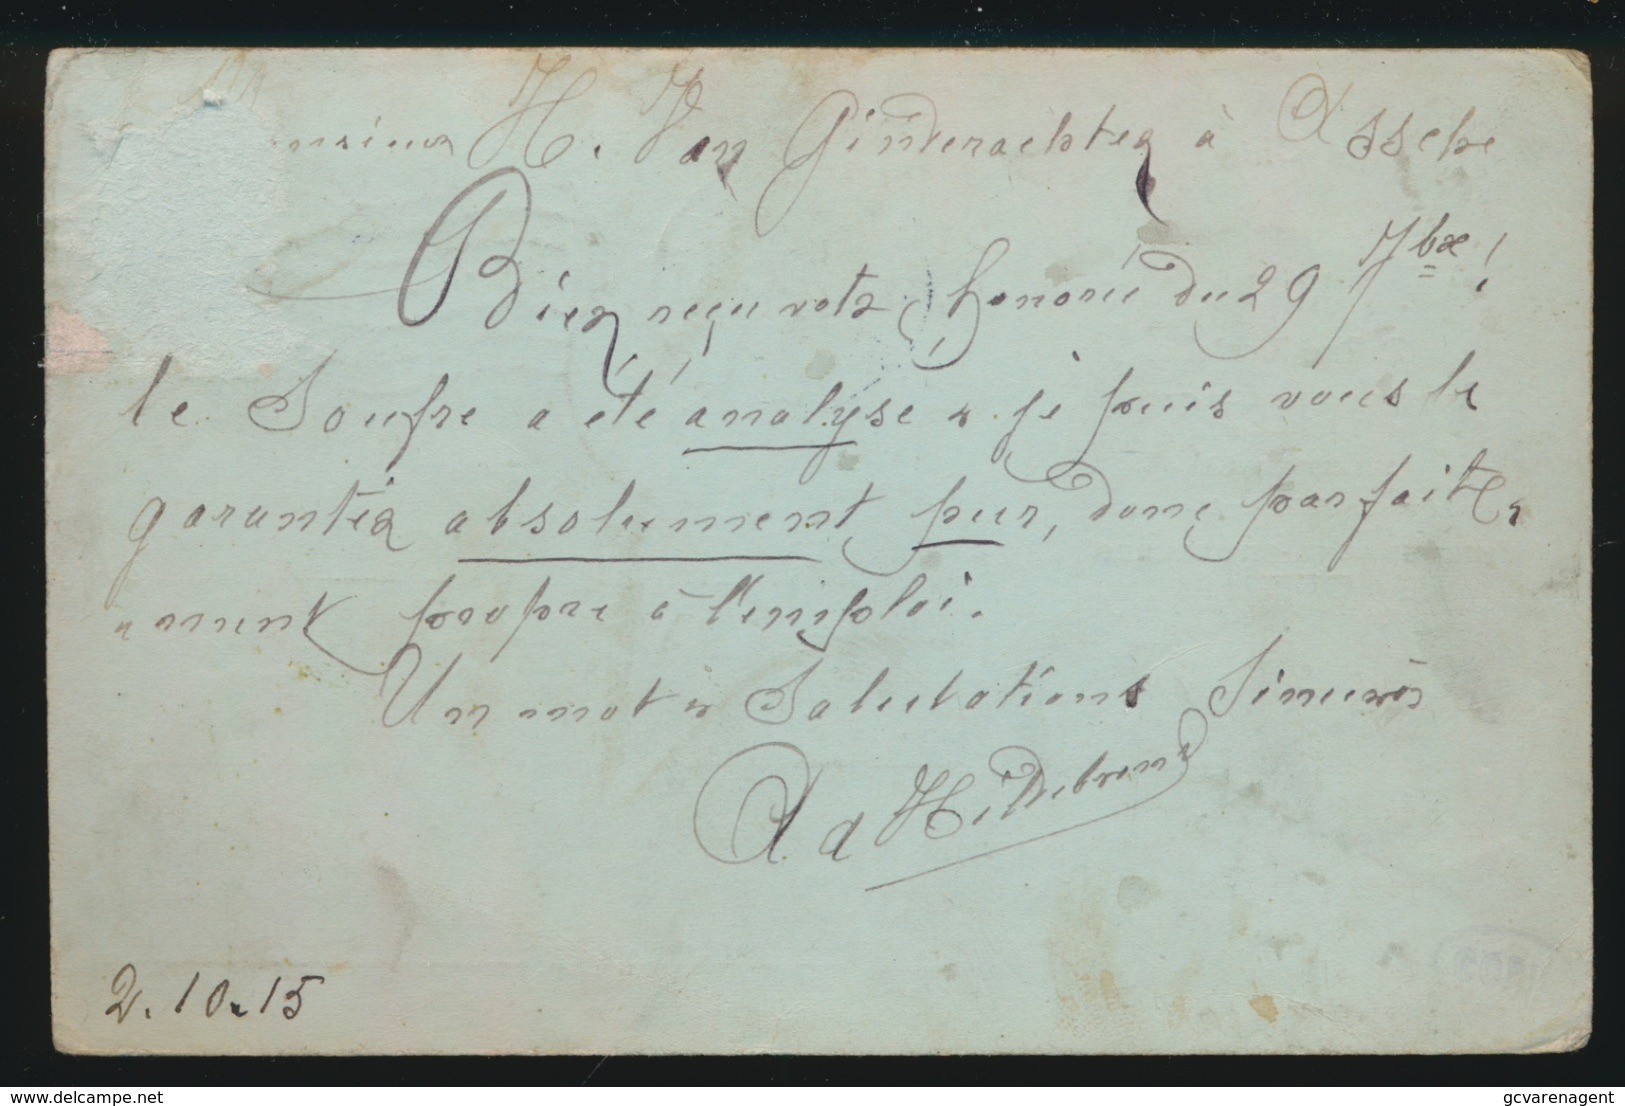 nsieur H. Van Ginderachter à Assche
Bien reçu votre honorée du 29 7bre !
le Soufre a été analysé & je puis vous le
garantir absolument pur, donc parfaite-
-ment propre à l'emploi.
Un mot & Salutations Sincères
Ad Hildebrand
2.10.15
COPI
delcampe.net
gcvarenagent